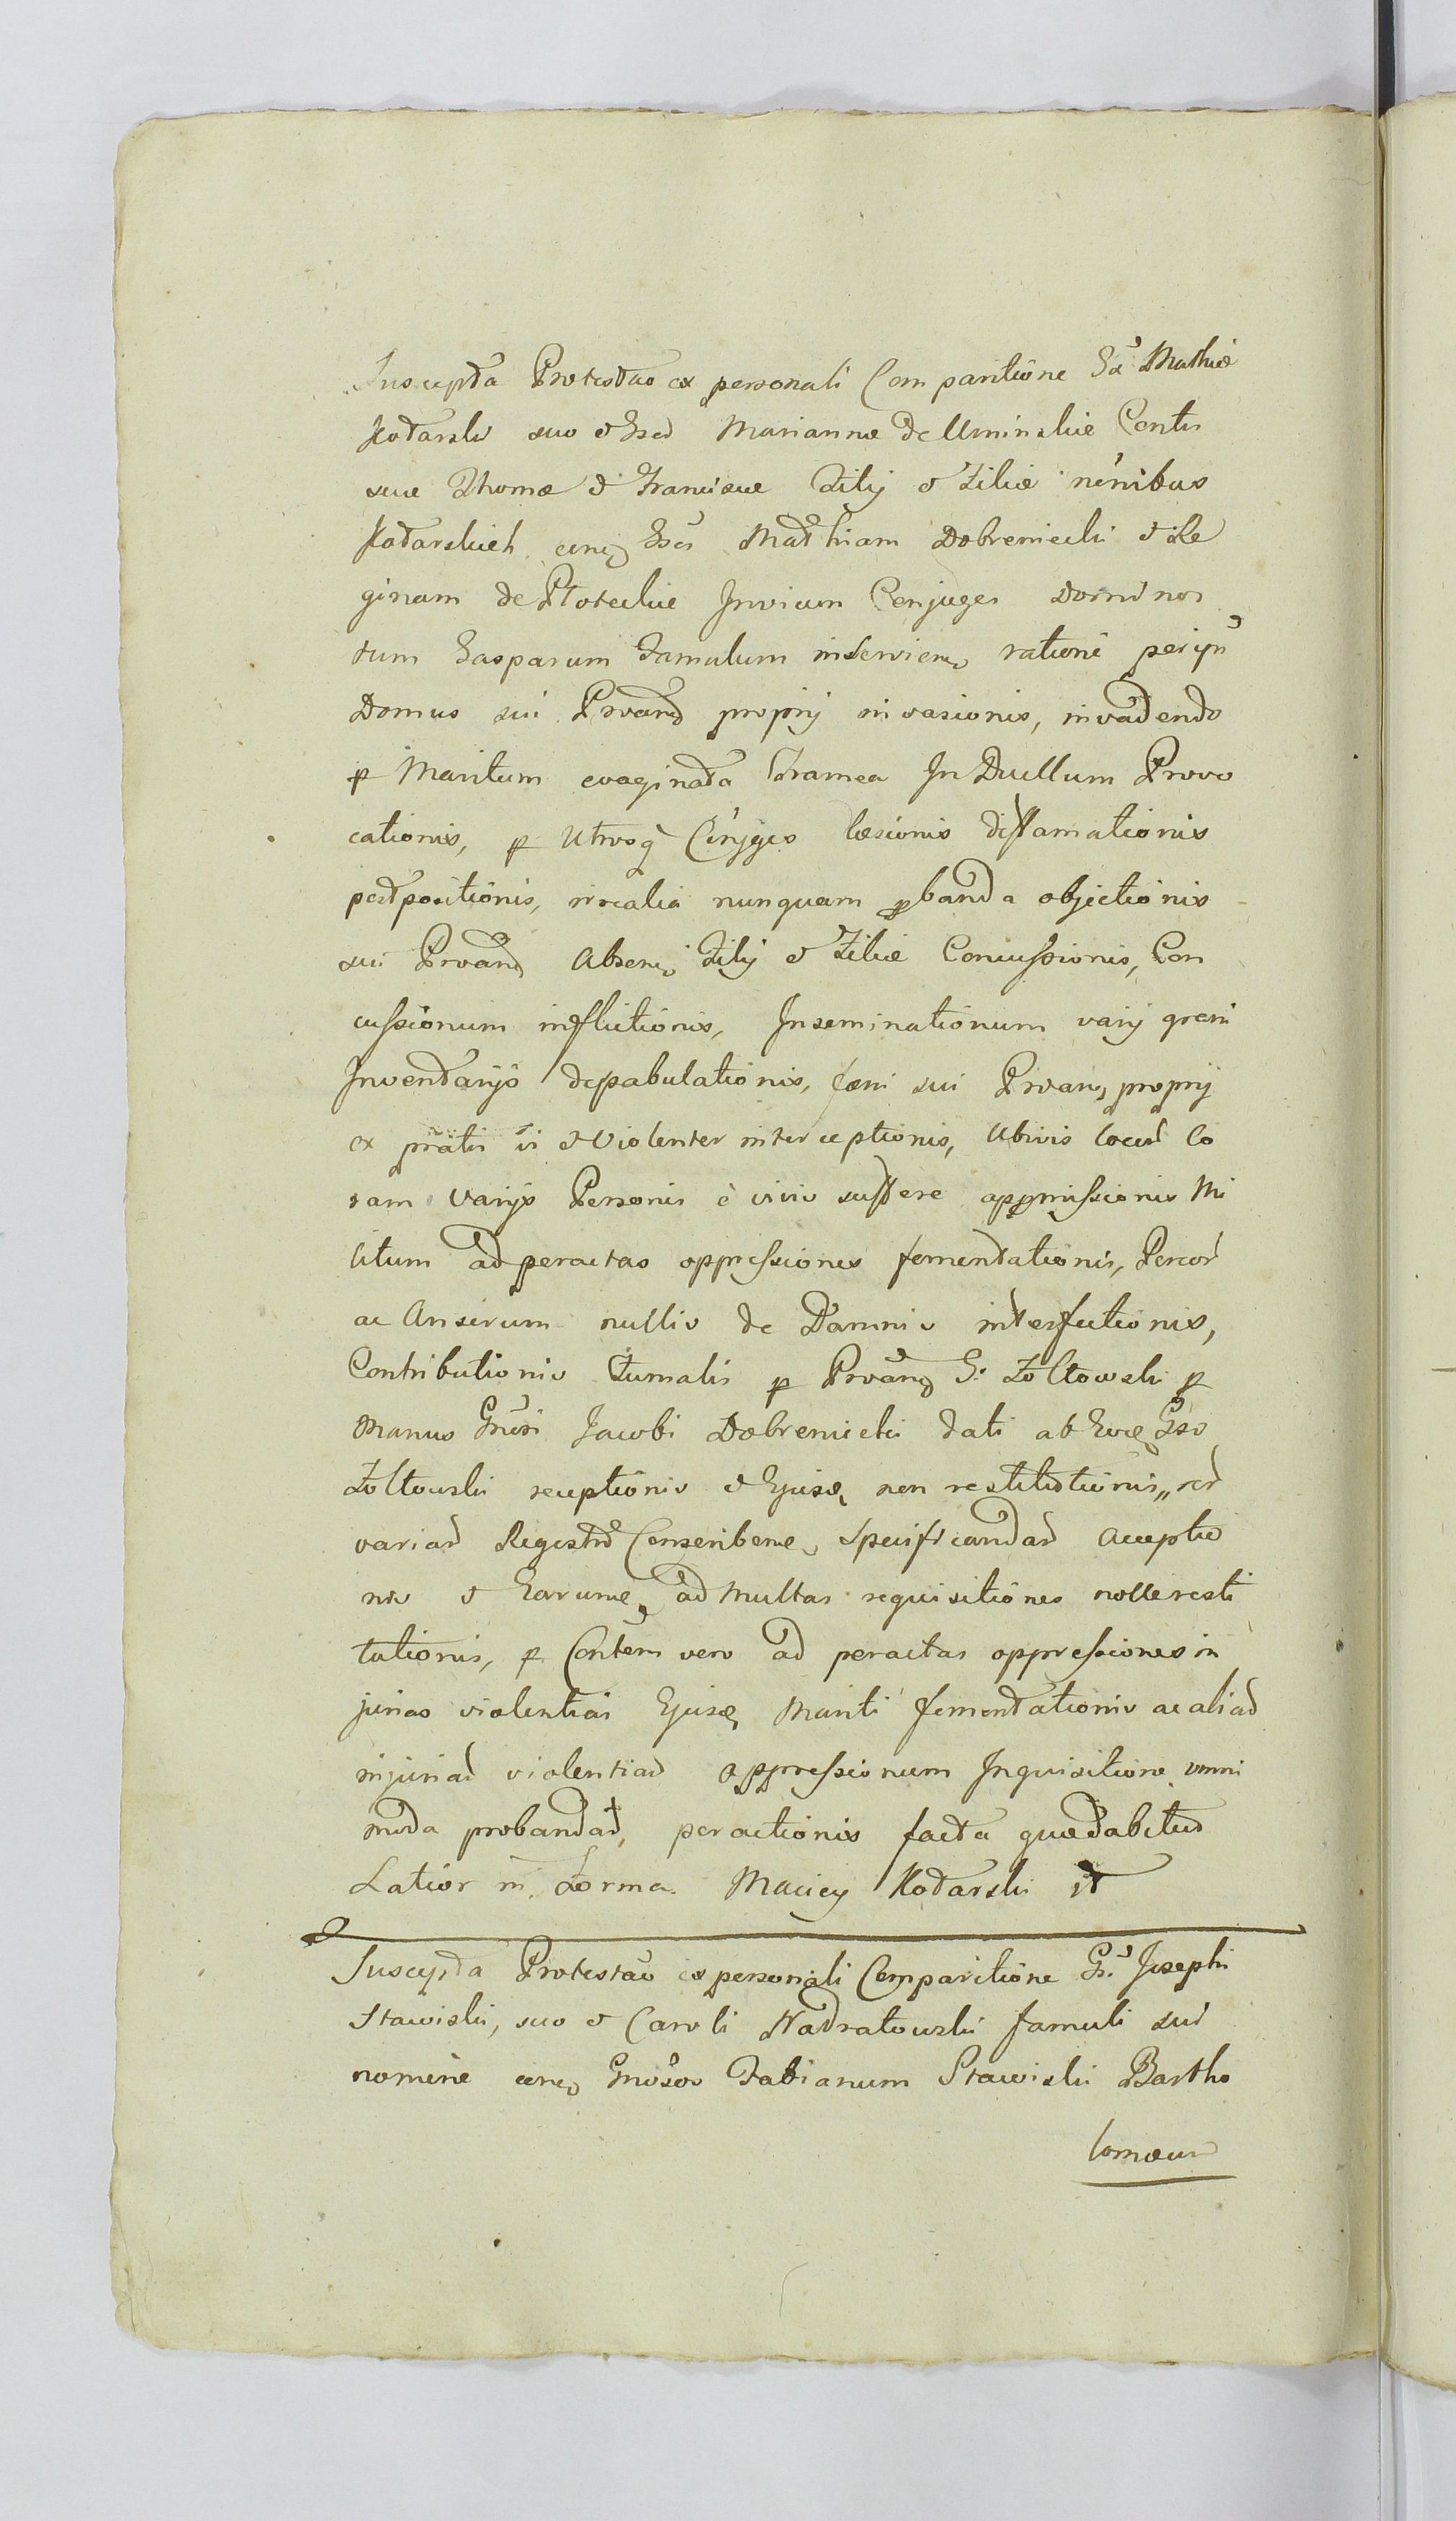 Suscepta Protestao ex personali Comparitione Gs. Mathiæ
Kotarski suo et Gsæ Mariannæ de Uminskie Contis
suæ Thomæ et Franciscæ Filij et Filiæ nēnibus
Kotarskich cirq Gsos Mathiam Dobreniecki et Re
ginam de Płoteckie Invicem Conjuges Dominos
tum Gasparum Famulum inservien ratione per ips
Domus sui Prvand proprij invasionis, invadendo
p Maritum evaginata Framea In Duellum Provo
cationis, p Utrosq Conjges læsionis diffamationis
postpositionis, irrealia nunquam pbanda objectionis
sui Prvand Absen Filij et Filiæ Concussionis, Con
cussionum inflictionis, Inseminationum varij grani
Inventarijs depabulationis, fæni sui Prvan proprij
ex pratis vi et violenter interceptionis, Ubivis locor Co
ram varijs Personis è vivis suffere appromissionis Ma
litum ad peractas oppressiones fomentationis, Porcor
ac Anserum nullis de Damnis interfectionis,
Contributionis Fumalis p Prvand G. Zołtowski p
Manus Gnūsi Jacobi Dobreniecki dati ab Eoq Gso
Zołtowski receptionis et Ejusq non restitutionis, rer
variar Regestro Conseribene specificandar Acceptio
nis et Earumq ad multas requisitiones nolle resti
tutionis, p Contem vero ad peractas oppressiones in
jurias violentias Ejusq Mariti fomentationis ac aliar
injuriar violentiar oppressionum Inquisitione omni
moda probandar, peractionis facta quæ dabitur
Latior in Forma. Maciey Kotarski
Suscepta Protestao ex personali Comparitione Gs. Josephi
Stawiski, suo et Caroli Nadratowski famuli sui
nomine cirq Gnosos Fabianum Stawiski Bartho
lomæum